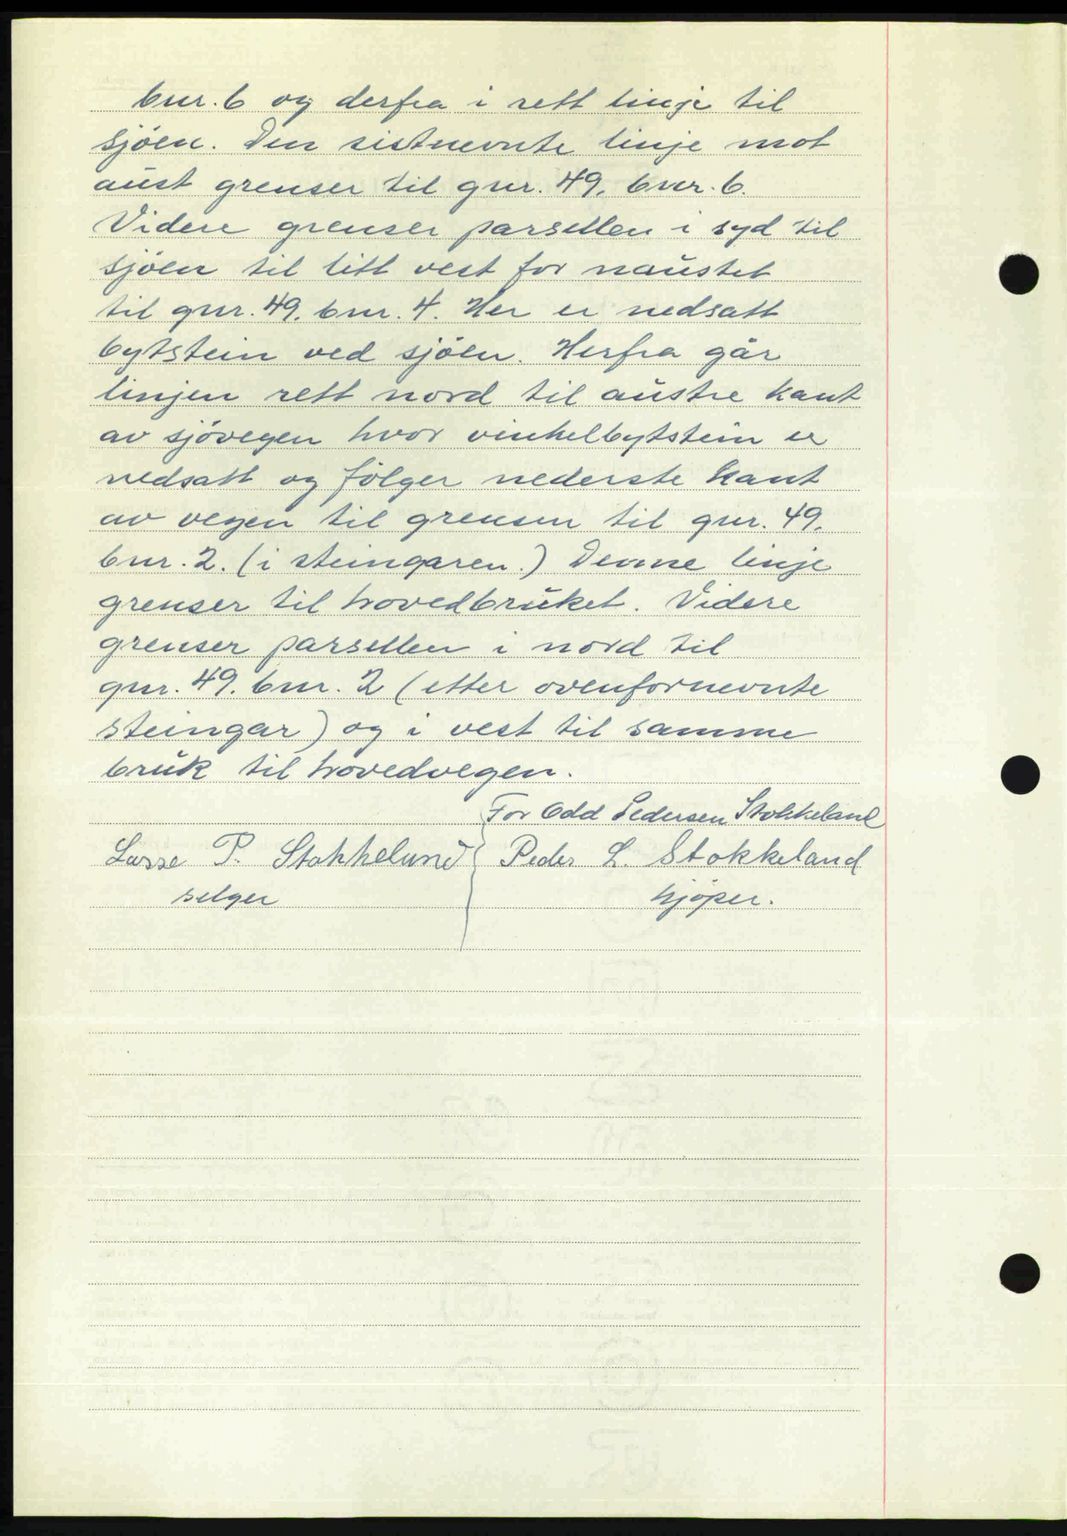 bnr. 6 og derfra i rett linje til
sjöen. Den sistnevnte linje mot
aust grenser til gnr. 49, bnr. 6.
Videre grenser parsellen i syd til
sjöen til litt vest for naustet
til gnr. 49. bnr. 4. Her er nedsatt
bytstein ved sjöen. Herfra går
linjen rett nord til austre kant
av sjövegen hvor vinkelbytstein er
nedsatt og følger nederste kant
av vegen til grensen til gnr. 49,
bnr. 2. (i steingaren.) Denne linje
grenser til hovedbruket. Videre
grenser parsellen i nord til
gnr. 49. bnr. 2 (etter ovenfornevnte
steingar) og i vest til samme
bruk til hovedvegen.
For Odd Pedersen Stokkeland
Lasse P. Stokkeland Peder L. Stokkeland
selger kjøper.